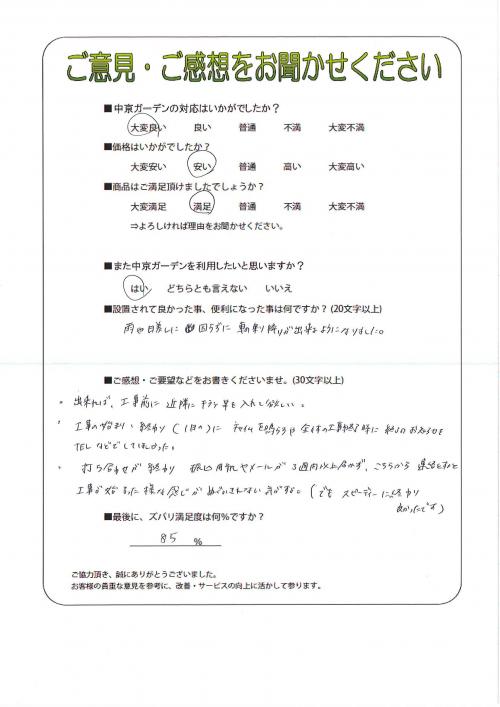 ご意見・ご感想をお聞かせください
■中京ガーデンの対応はいかがでしたか？
大変良い 良い 普通 不満 大変不満
■価格はいかがでしたか？
大変安い 安い 普通 高い 大変高い
■商品はご満足頂けましたでしょうか？
大変満足 満足 普通 不満 大変不満
⇒よろしければ理由をお聞かせください。
■また中京ガーデンを利用したいと思いますか？
はい どちらとも言えない いいえ
■設置されて良かった事、便利になった事は何ですか？(20文字以上)
雨や日差しに困らずに車の乗り降りが出来るようになりました。
■ご感想・ご要望などをお書きくださいませ。(30文字以上)
・出来れば、工事前に近隣にチラシ等を入れて欲しい。
・工事の始まり・終わり(1日の)にチャイムを鳴らすor全体の工事終了時に終了のお知らせを
TELなどでしてほしかった。
・打ち合わせが終わり 振込用紙やメールが3週間以上届かず、こちらから連絡すると
工事が始まった様な感じが がする。(でも スピーディーに終わり
良かったです)
■最後に、ズバリ満足度は何%ですか？
85 %
ご協力頂き、誠にありがとうございました。
お客様の貴重な意見を参考に、改善・サービスの向上に活かして参ります。